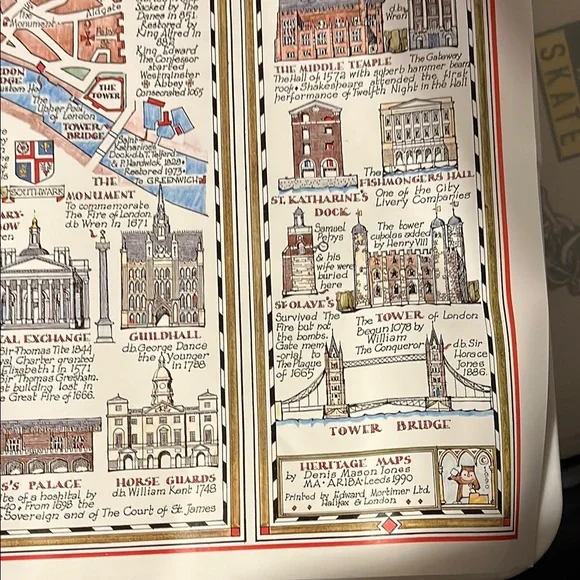 sacked by the
Danes in 851.
Restored by
King Alfred in
883
King Edward
The Confessor
started
Westminster
Abbey
Consecrated 1065
Aldgate
The
Monument
THE
TOWER
The
Upper Pool
of London
TOWER
BRIDGE
Saint
Katharines
Dock d.b. T. Telford
& P. Hardwick, 1828.
Restored 1973.
To GREENWICH
SOUTHWARK
THE
MONUMENT
To commemorate
The Fire of London.
d.b Wren in 1671
GUILDHALL
d.b. George Dance
the Younger
in 1788
AL EXCHANGE
Sir Thomas Tite 1844
yal Charter granted
Elizabeth I in 1571
Sir Thomas Gresham.
st building lost in
e Great Fire of 1666.
S'S PALACE
te of a hospital by
40. From 1698 the
Sovereign and of The Court of St. James
HORSE GUARDS
d.b. William Kent 1748
d.b.
Wren
THE MIDDLE TEMPLE
The Gateway
The Hall of 1572 with superb hammer beam
roof. Shakespeare attended the first
performance of Twelfth Night in the Hall
ST. KATHARINE'S
DOCK
The
FISHMONGERS HALL
One of the City
Livery Companies
Samuel
Pepys
& his
wife were
buried
here
ST OLAVE'S
Survived The
Fire but not
the bombs.
Gate mem-
orial to
The Plague
of 1665
The tower
cupolas added
by Henry VIII
The TOWER of London
Begun 1078 by
William
The Conqueror
d.b. Sir
Horace
Jones
1886.
TOWER BRIDGE
HERITAGE MAPS
by Denis Mason Jones
MA. ARIBA. Leeds 1990
Printed by Edward Mortimer Ltd.
Halifax & London
©
1990
SKATE